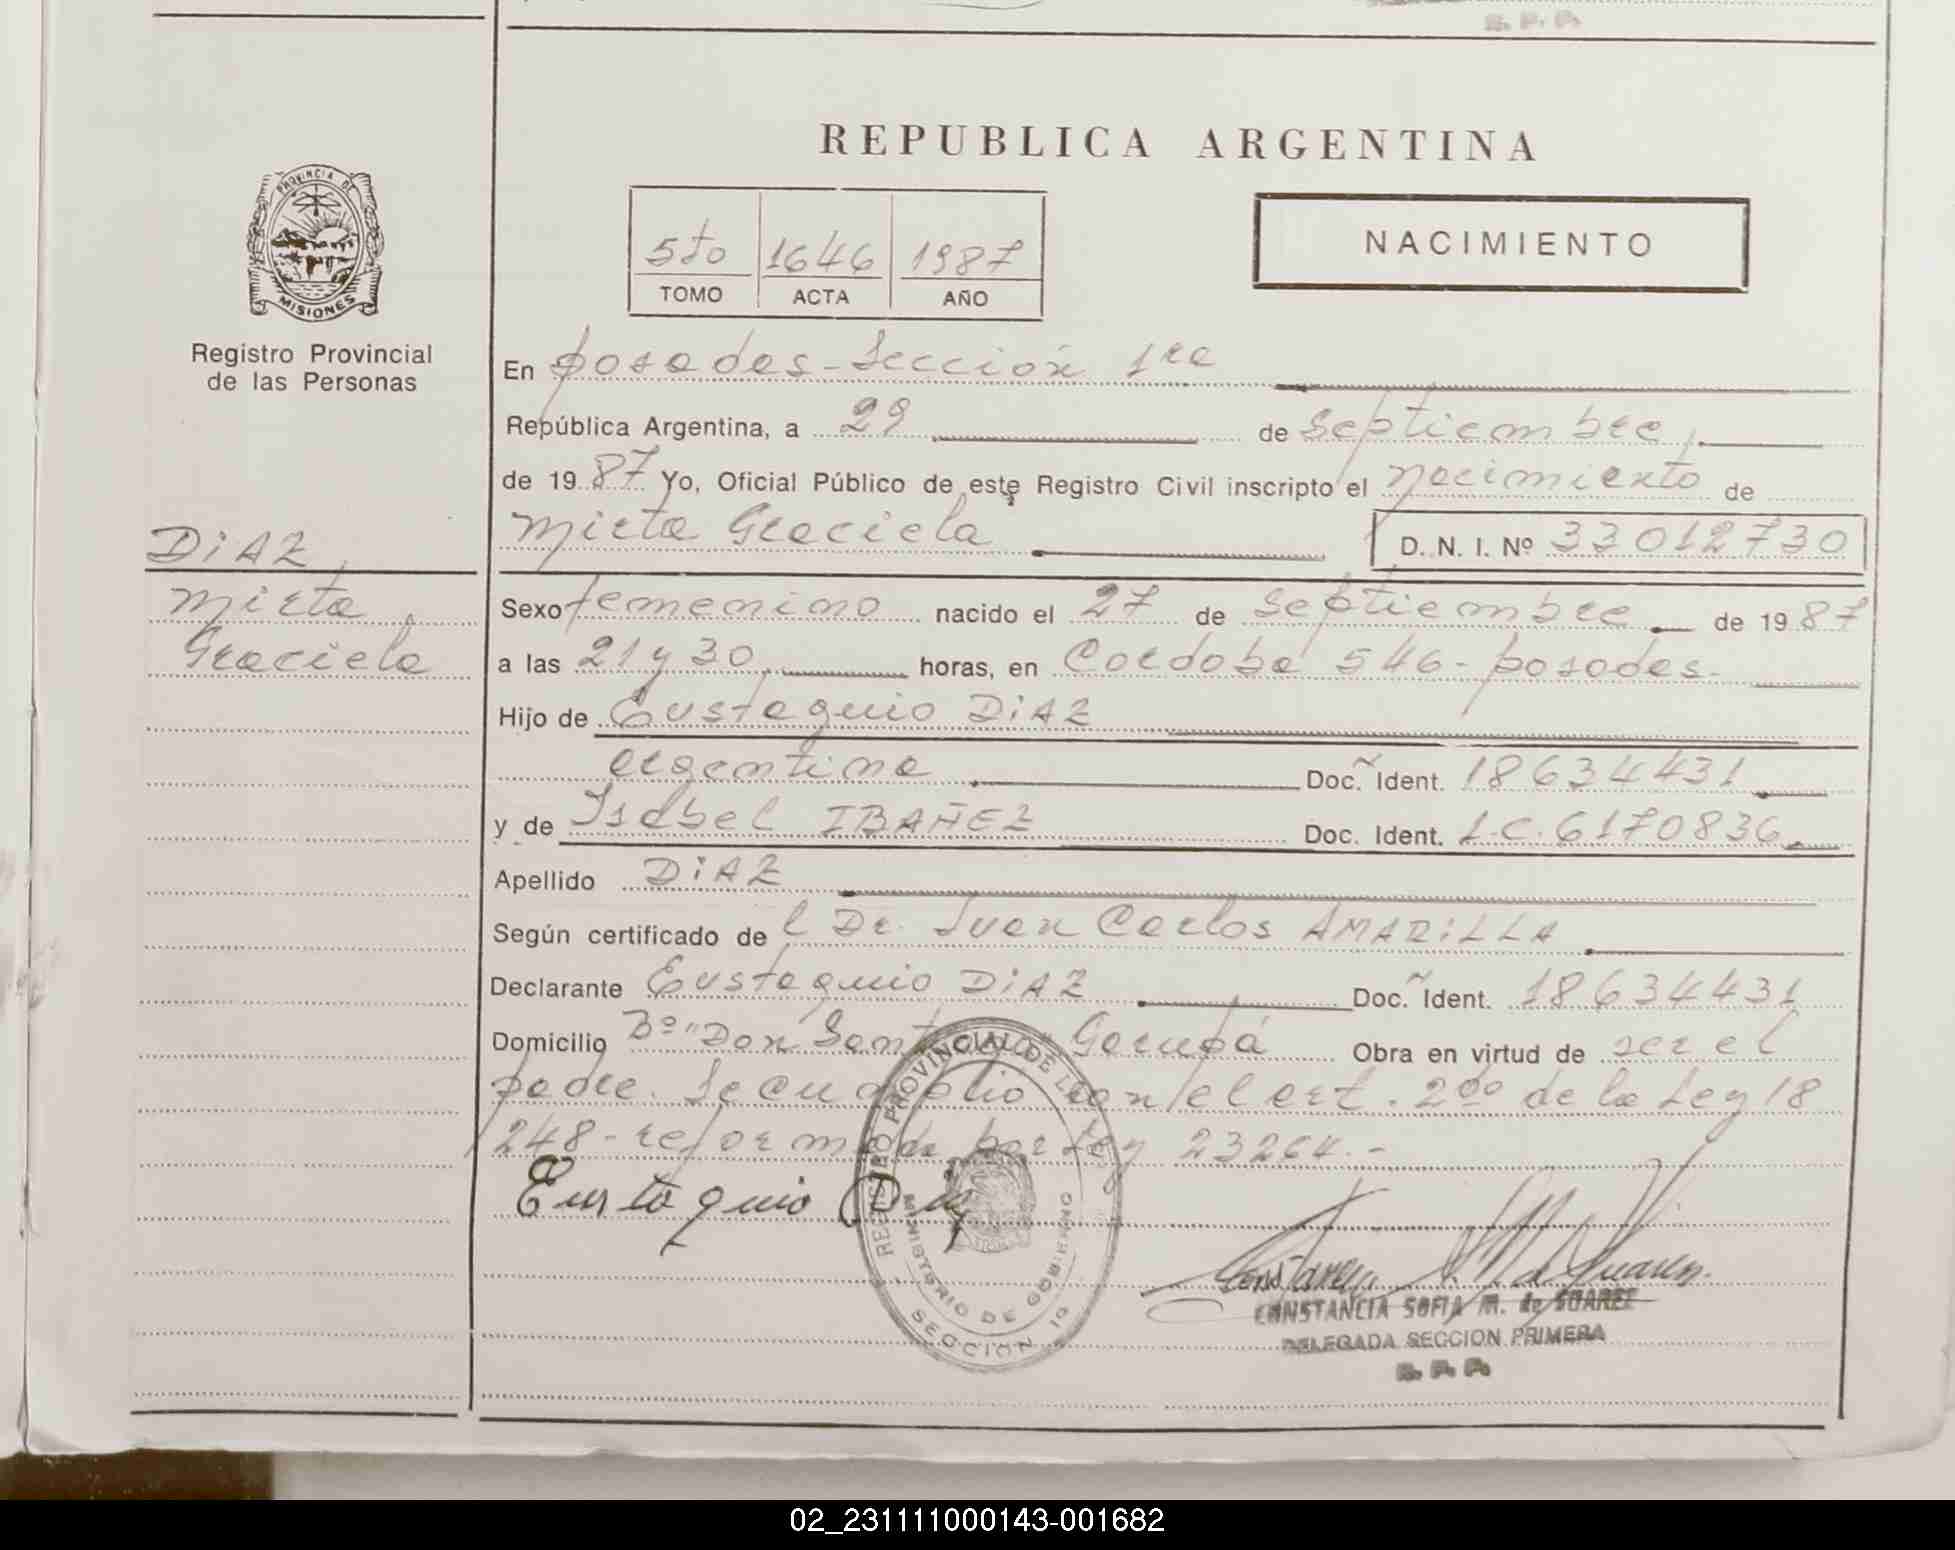 R. P. P.
REPUBLICA ARGENTINA
PROVINCIA DE
MISIONES
Registro Provincial
de las Personas
5to 1646 1987
TOMO ACTA AÑO
NACIMIENTO
En posadas - Sección 1ra
República Argentina, a 29 de septiembre
de 1987 Yo, Oficial Público de este Registro Civil inscripto el nacimiento de
Mirta Graciela D. N. I. Nº 33012730
DiAZ
Mirta
Graciela
Sexo femenino nacido el 27 de septiembre de 1987
a las 21 y 30 horas, en Cordoba 546 - posadas -
Hijo de Eustaquio DiAZ
argentina Doc. Ident. 18634431
y de Isabel IBAÑEZ Doc. Ident. L.C. 6170836
Apellido DiAZ
Según certificado del Dr. Juan Carlos AMARiLLA
Declarante Eustaquio DiAZ Doc. Ident. 18634431
Domicilio Bº "Don Garupá Obra en virtud de ser el
padre. Se cumplio con el art. 2do de la Ley 18
248 - reformada por Ley 23264.-
Eustaquio Diaz
REGISTRO PROVINCIAL DE L
MINISTERIO DE GOBIERNO
SECCION 1a
CONSTANCIA SOFIA M. de SUAREZ
DELEGADA SECCION PRIMERA
R. P. P.
02_231111000143-001682